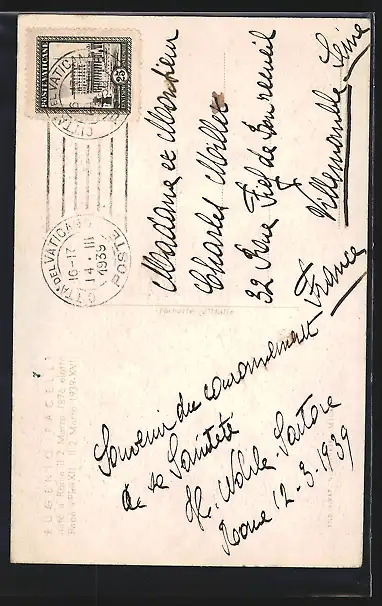 POSTE VATICANE
25
CITTA' DEL VATICANO
16-17
14 · III
1939
POSTE
Madame et Monsieur
Charles Maillet
32 Rue Fief de
Villemomble Seine
France
EUGENIO PACELLI
nato a Roma il 2 Marzo 1876 eletto
Papa Pio XII il 2 Marzo 1939-XVII
Souvenir du couronnement
de sa Sainteté
Rome 12-3-1939